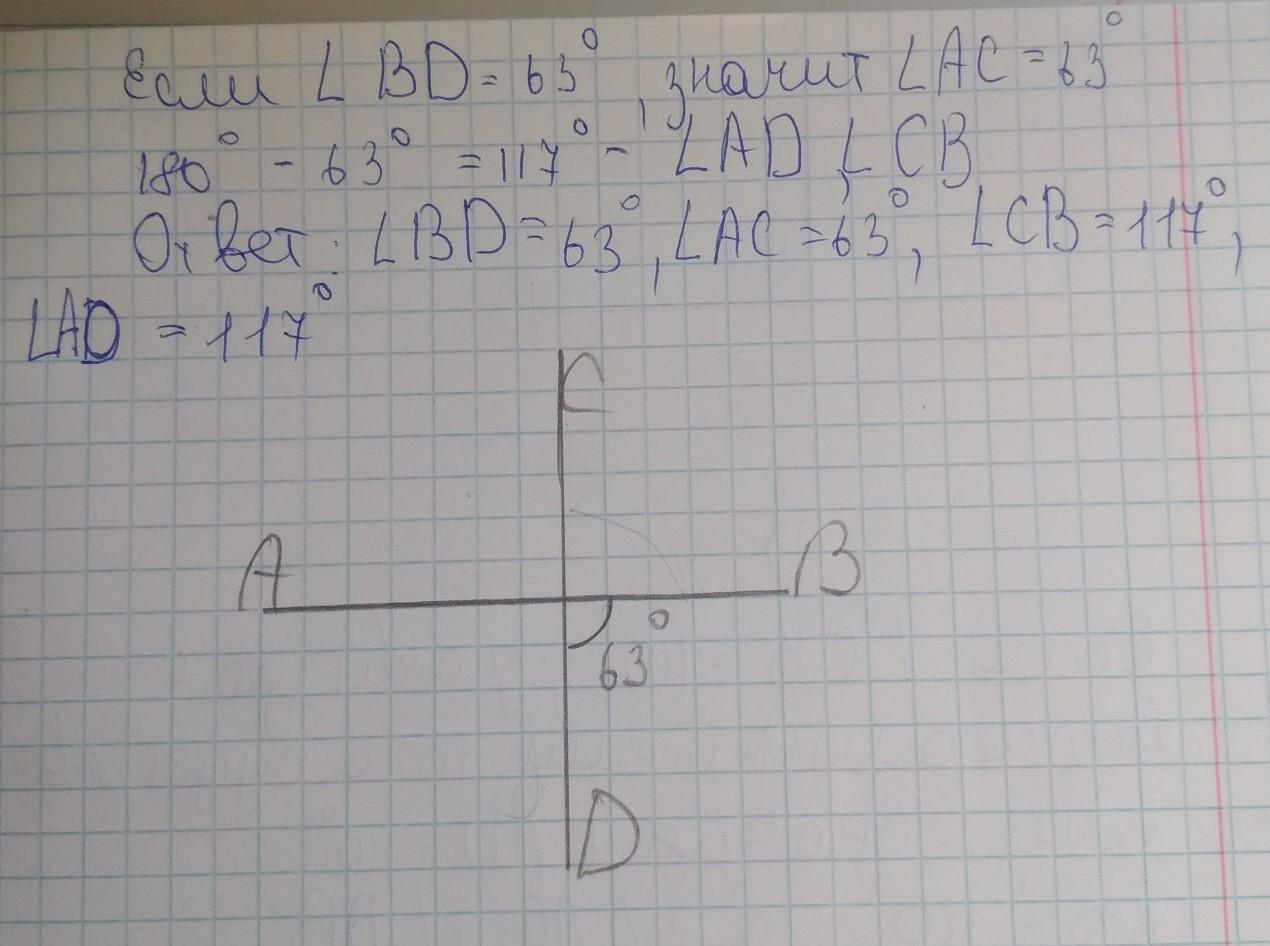 Если ∠BD = 63°, значит ∠AC = 63°
180° - 63° = 117° - ∠AD, ∠CB
Ответ: ∠BD = 63°, ∠AC = 63°, ∠CB = 117°,
∠AD = 117°
C
A
B
63°
D